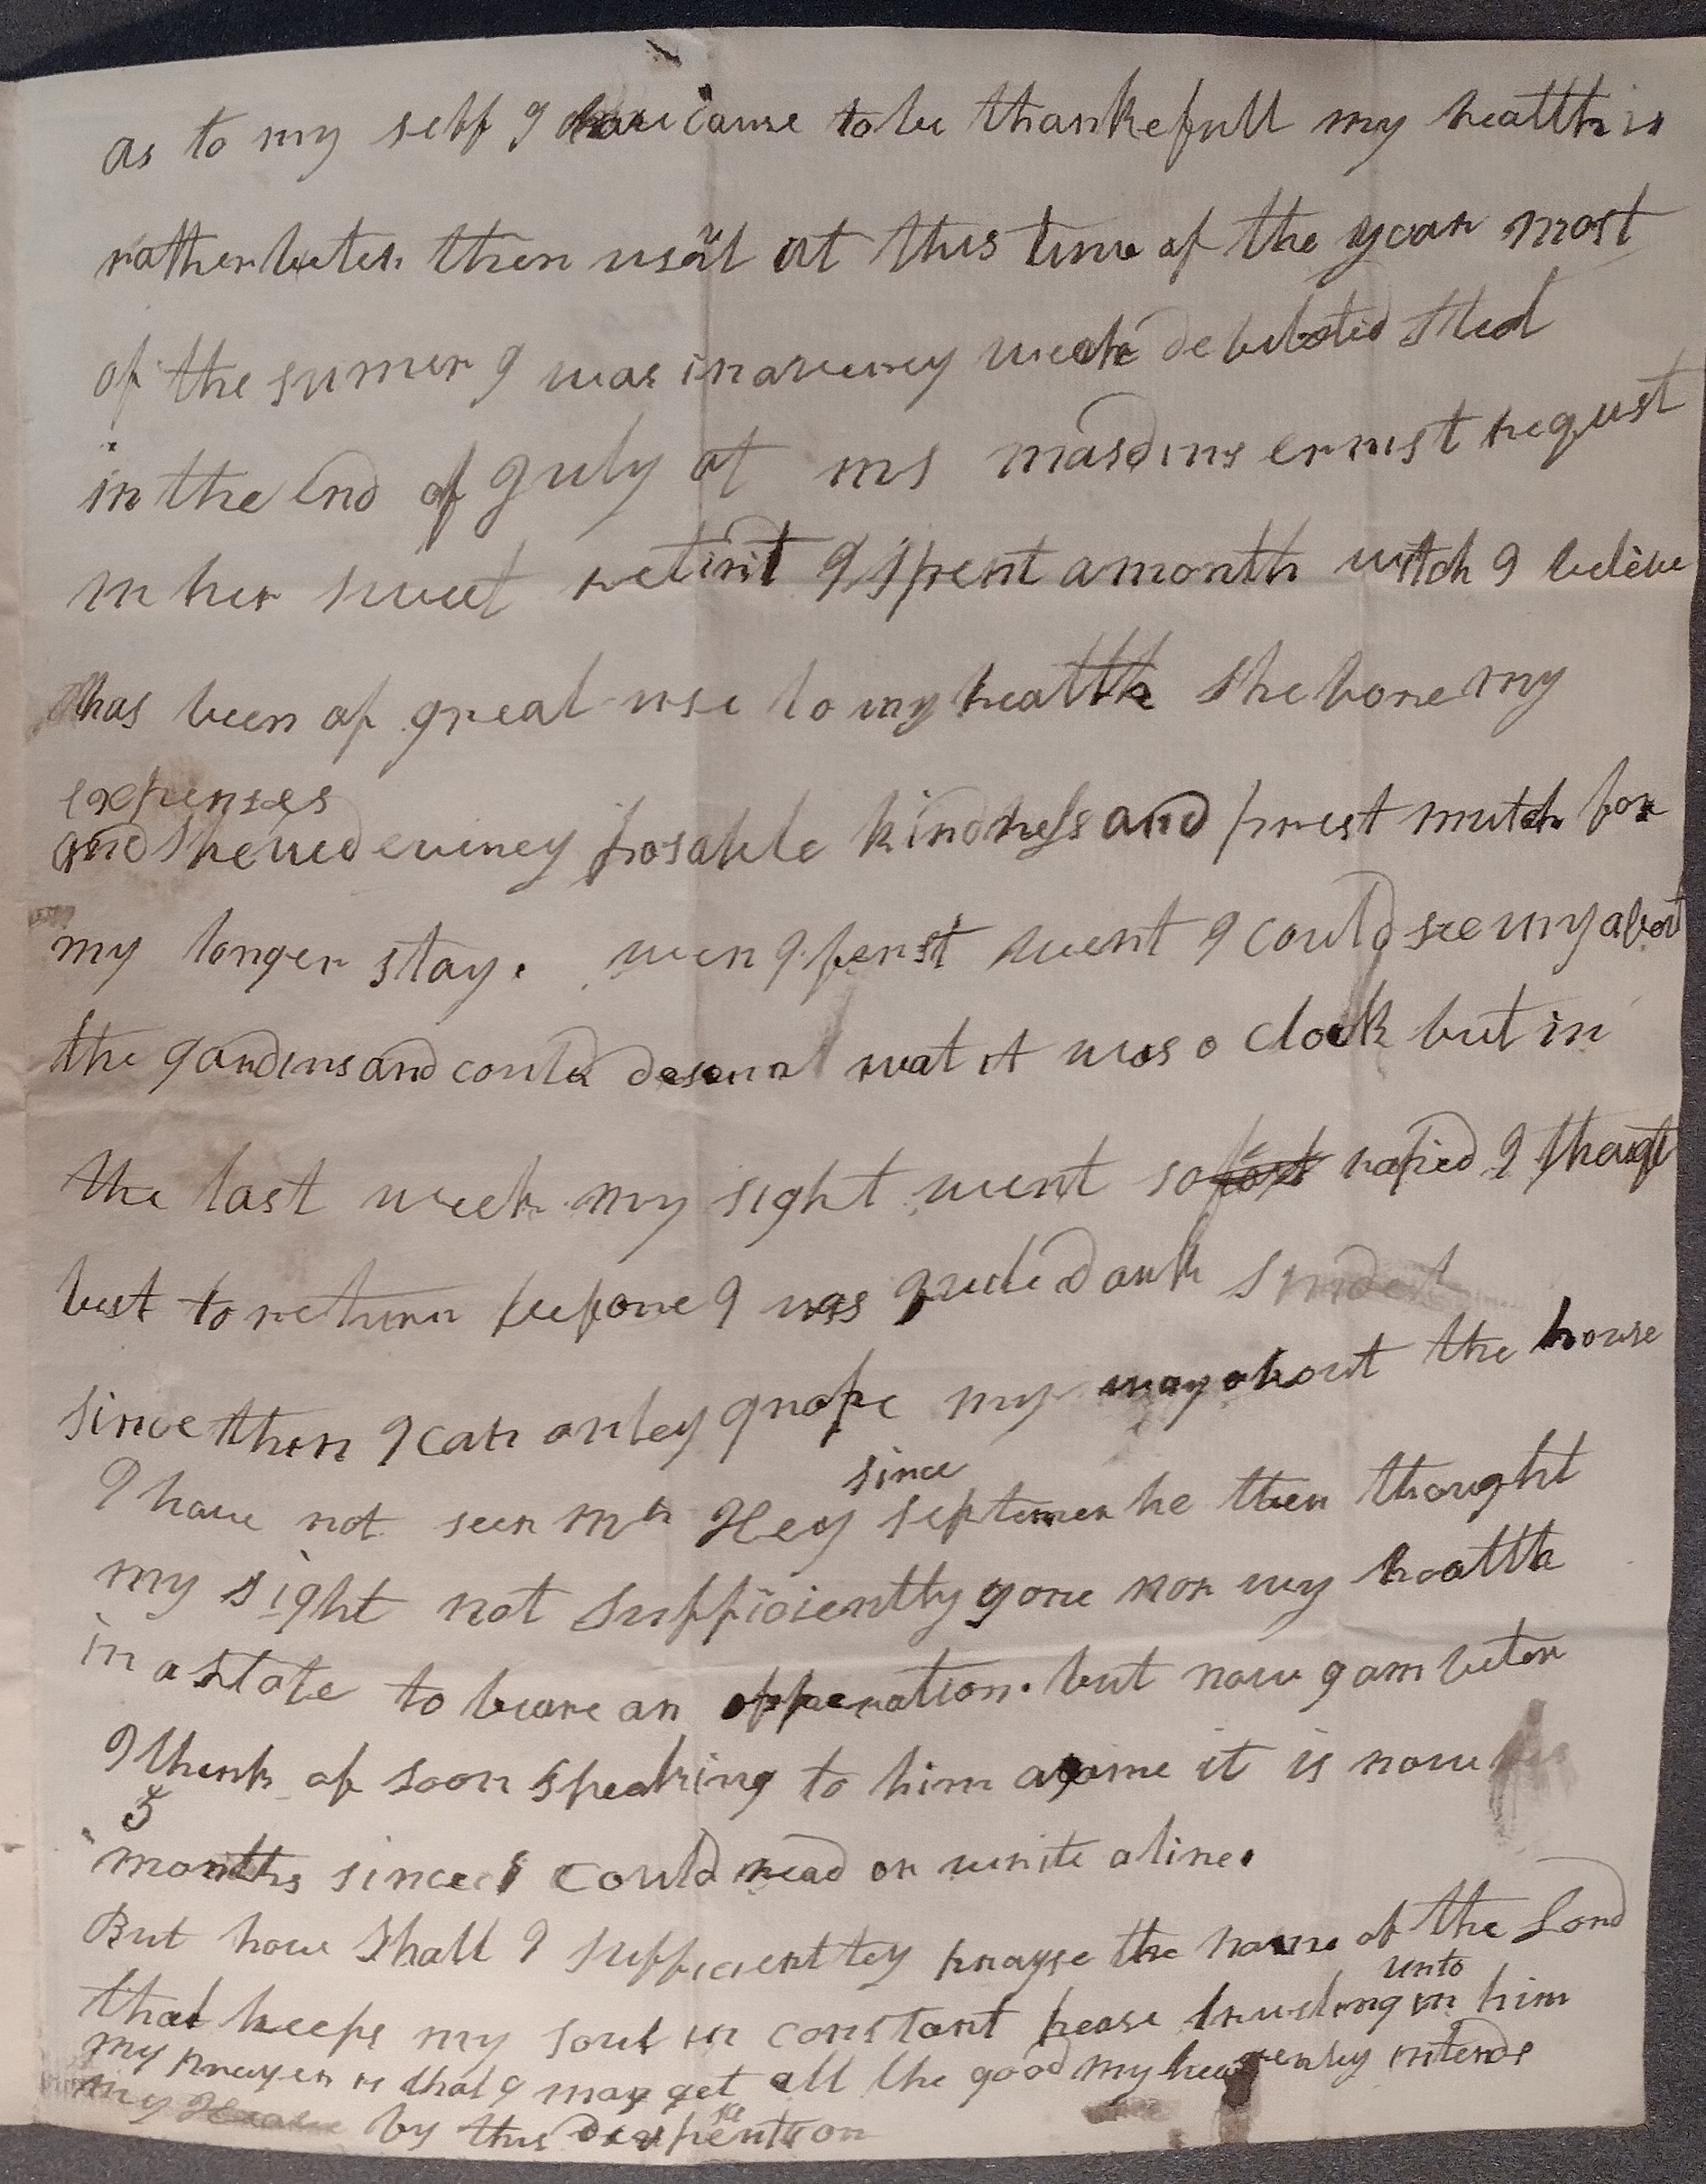 as to my self I have cause to be thankefull my health is
rather beter then usäl at this time of the year most
of the sumer I was in a wery weak debilated sted
in the End of July at ms masdins ernist requst
in her sweet retirit I spent a month witch I beleive
has been of great use to my health she bore my
expenses
and shewed everey posable kindness and prest mutch for
my longer stay. wen I ferst went I could see my about
the gardins and could desern wat it was o clock but in
the last week my sight went so fast rapied I thougt
best to return beefore I was quite dark
since then I can onley grope my way about the house
since
I have not seen Mr Hey septemer he then thought
my sight not sufficiently gone nor my health
in a state to beare an opperation. but now I am beter
I think of soon speaking to him againe it is now
5
months since I could read or write a line.
But how shall I sufficientley prayse the name of the Lord
unto
that keeps my soul in constant pease trusting in him
my prayer is that I may get all the good my heavenley intends
my by this